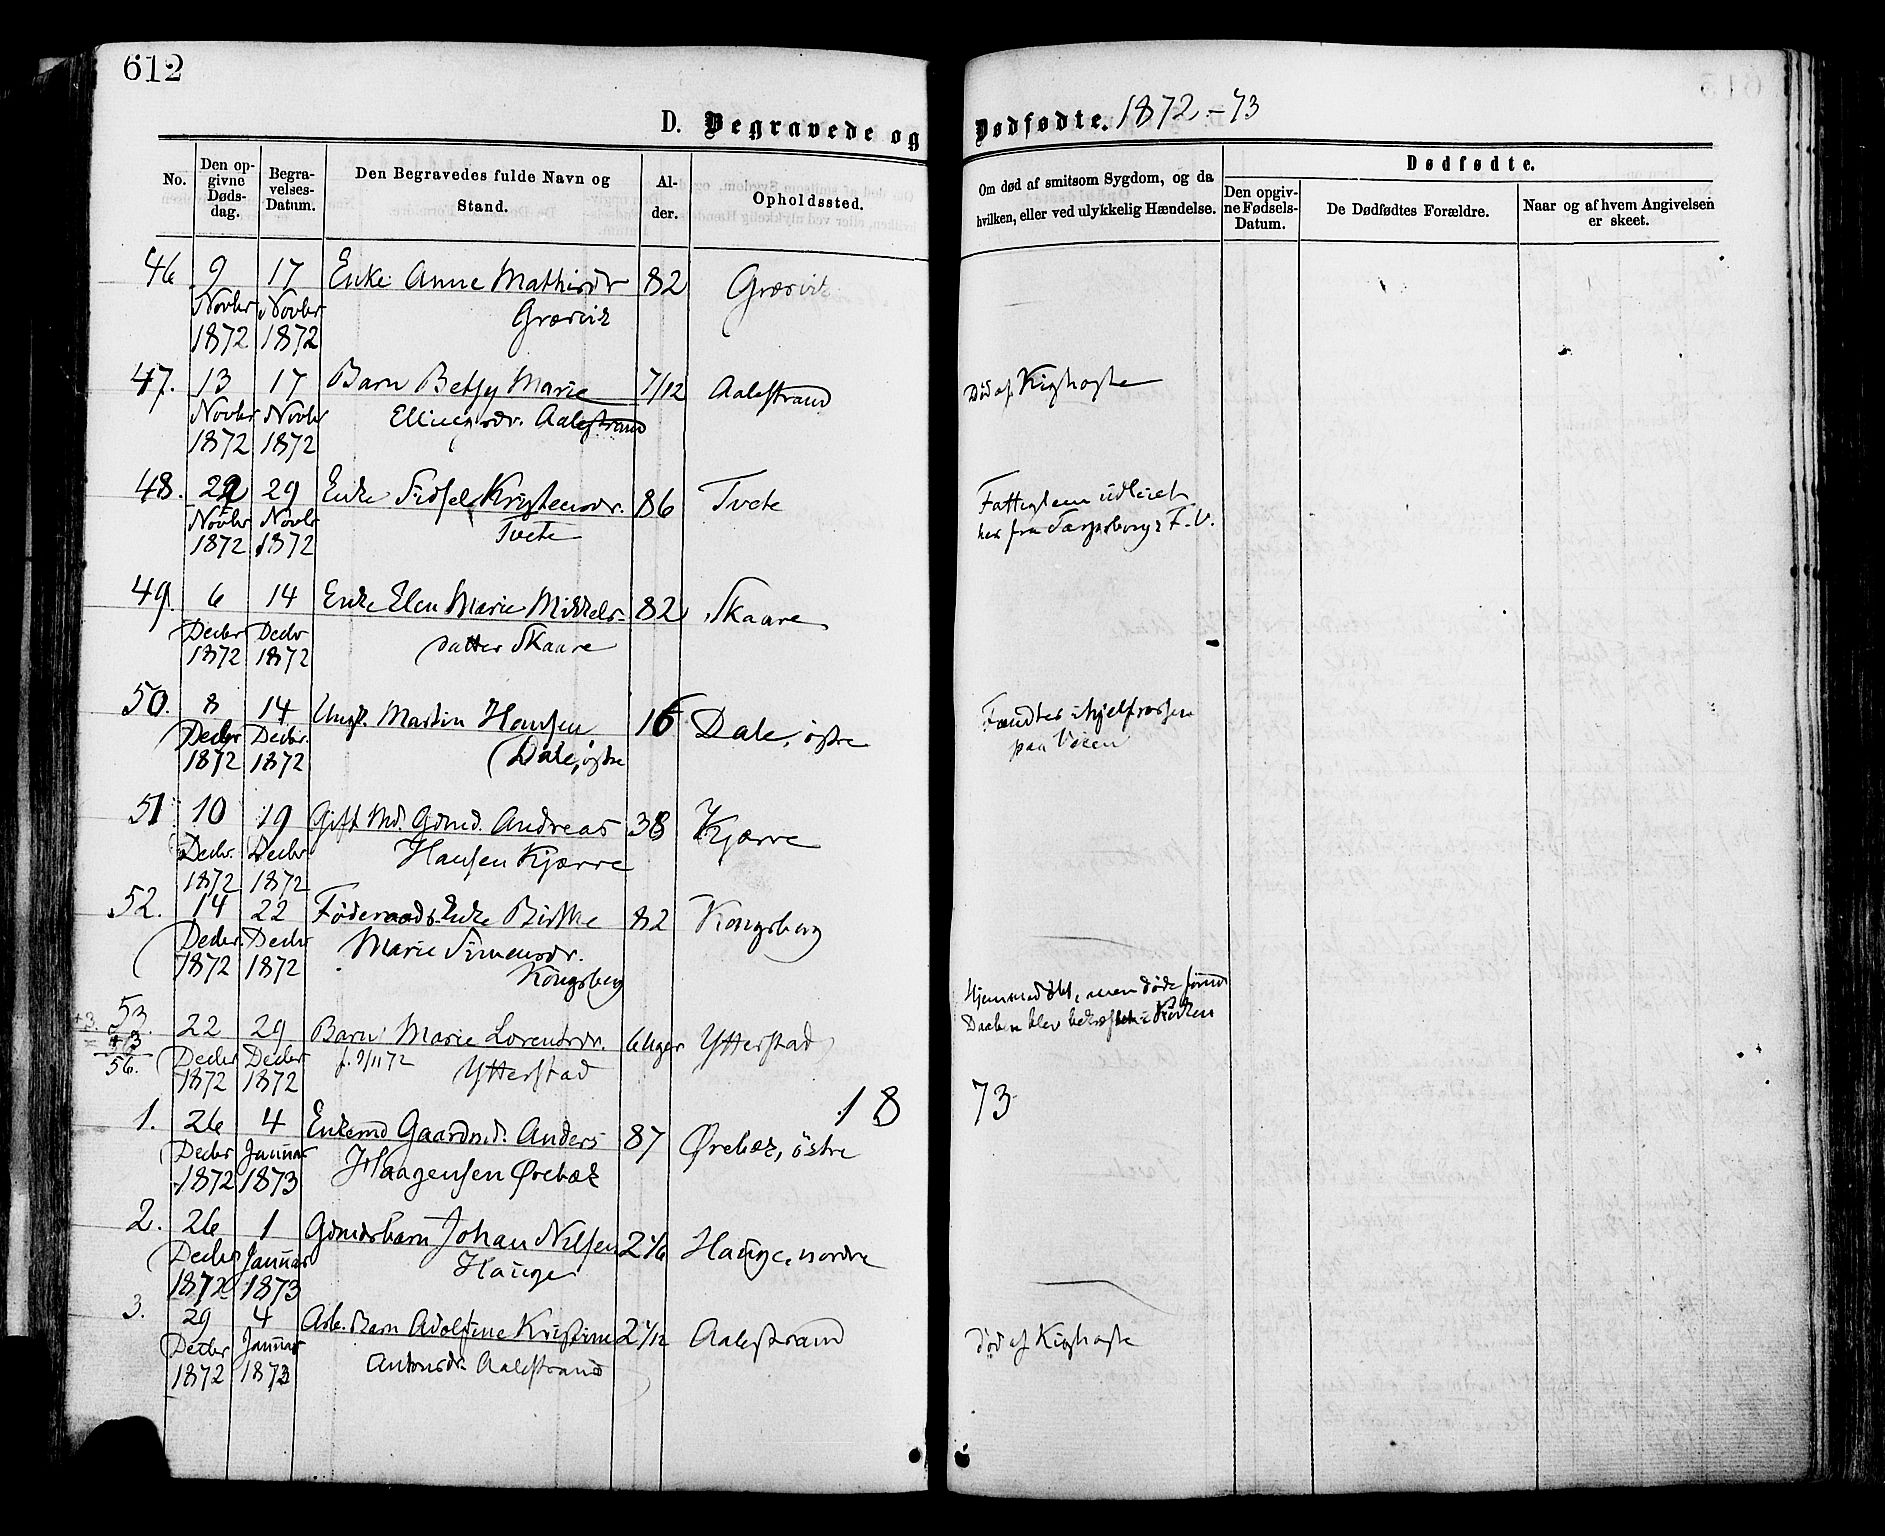 612
D. Begravede og Dødfødte. 1872.-73
No.
Den opgivne Dødsdag.
Begravelses-Datum.
Den Begravedes fulde Navn og Stand.
Alder.
Opholdssted.
Om død af smitsom Sygdom, og da hvilken, eller ved ulykkelig Hændelse.
Dødfødte.
Den opgivne Fødsels-Datum.
De Dødfødtes Forældre.
Naar og af hvem Angivelsen er skeet.
46. 9 17 Enke Anne Mathisdr 82 Græsvik
Novbr Novbr Græsvik
1872 1872
47. 13 17 Barn Betsy Marie 7/12 Aalestrand Død af Kighoste
Novbr Novbr Ellingsdr. Aalestrand
1872 1872
48. 22 29 Enke Sidsel Kristensdr. 86 Tvete Fattiglem udleiet
Novbr Novbr Tvete her fra Sarpsborgs F.V.
1872 1872
49. 6 14 Enke Elen Marie Mikkels- 82 Skaare
Decbr Decbr datter Skaare
1872 1872
50. 8 14 Ungk. Martin Hansen 16 Dale, østre Fandtes ihjelfrossen
Decbr Decbr. Dale, østre paa Veien
1872 1872
51 10 19 Gift Md. Gdmd. Andreas 38 Kjærre
Decbr. Decbr Hansen Kjærre
1872 1872
52. 14 22 Føderaads Enke Birthe 82 Kongsberg
Decbr. Decbr Marie Simensdr.
1872 1872 Kongsberg
53. 22 29 Barn Marie Lorentsdr. 6 Uger Ytterstad Hjemmedøbt, men døde førend
+3 Decbr Decbr f. 9/11 72 Ytterstad Daaben blev bekræftet i Kirken
56. 1872 1872
1873
1. 26 4 Enkemd Gaardmd. Anders 87 Ørebæk, østre
Decbr Januar Haagensen Ørebæk
1872 1873
2. 26 1 Gdmdsbarn Johan Nilsen 2 1/6 Hauge, nordre
Decbr Januar Hauge
1872 1873
3. 29 4 Arb. Barn Adolfine Kristine 2 1/12 Aalestrand død af Kighoste
Decbr Januar Antonsdr. Aalestrand
1872 1873